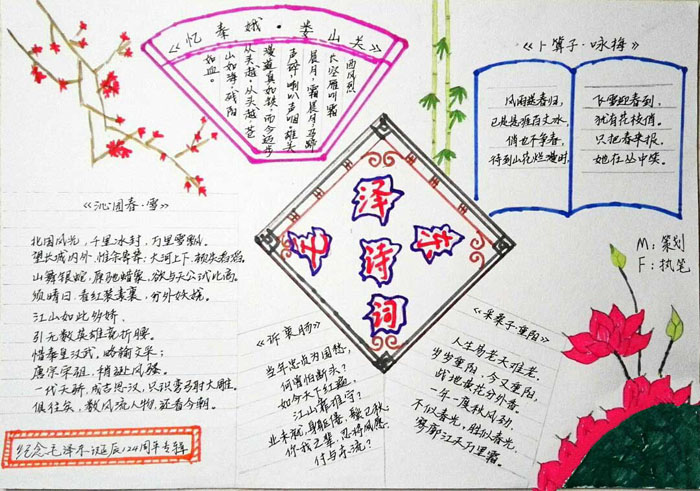 《忆秦娥·娄山关》
西风烈
长空雁叫霜
晨月，霜晨月，马蹄
声碎，喇叭声咽。雄关
漫道真如铁，而今迈步
从头越。从头越，苍
山如海，残阳
如血。
《卜算子·咏梅》
风雨送春归，
已是悬崖百丈冰，
俏也不争春，
待到山花烂漫时，
飞雪迎春到，
犹有花枝俏。
只把春来报。
她在丛中笑。
毛泽东
诗
词
《沁园春·雪》
北国风光，千里冰封，万里雪飘。
望长城内外，惟余莽莽，大河上下，顿失滔滔。
山舞银蛇，原驰蜡象，欲与天公试比高。
须晴日，看红装素裹，分外妖娆。
江山如此多娇，
引无数英雄竞折腰。
惜秦皇汉武，略输文采；
唐宗宋祖，稍逊风骚。
一代天骄，成吉思汗，只识弯弓射大雕。
俱往矣，数风流人物，还看今朝。
纪念毛泽东诞辰124周年专辑
《诉衷肠》
当年忠贞为国愁，
何曾怕断头？
如今天下红遍，
江山靠谁守？
业未就，身躯倦，鬓已秋；
你我之辈，忍将夙愿，
付与东流？
《采桑子·重阳》
人生易老天难老，
岁岁重阳，今又重阳，
战地黄花分外香。
一年一度秋风劲，
不似春光，胜似春光，
寥廓江天万里霜。
M：策划
F：执笔